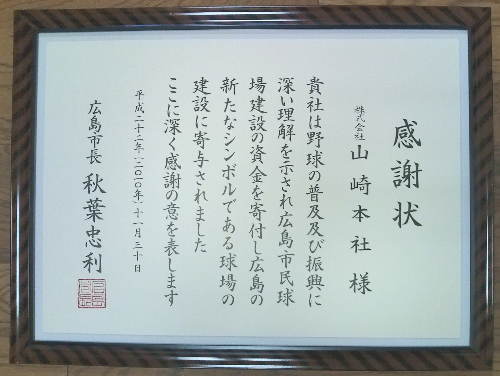 感謝状
株式会社 山崎本社 様
貴社は野球の普及及び振興に
深い理解を示され広島市民球
場建設の資金を寄付し広島の
新たなシンボルである球場の
建設に寄与されました
ここに深く感謝の意を表します
平成二十二年(二〇一〇年)十一月三十日
広島市長 秋葉忠利